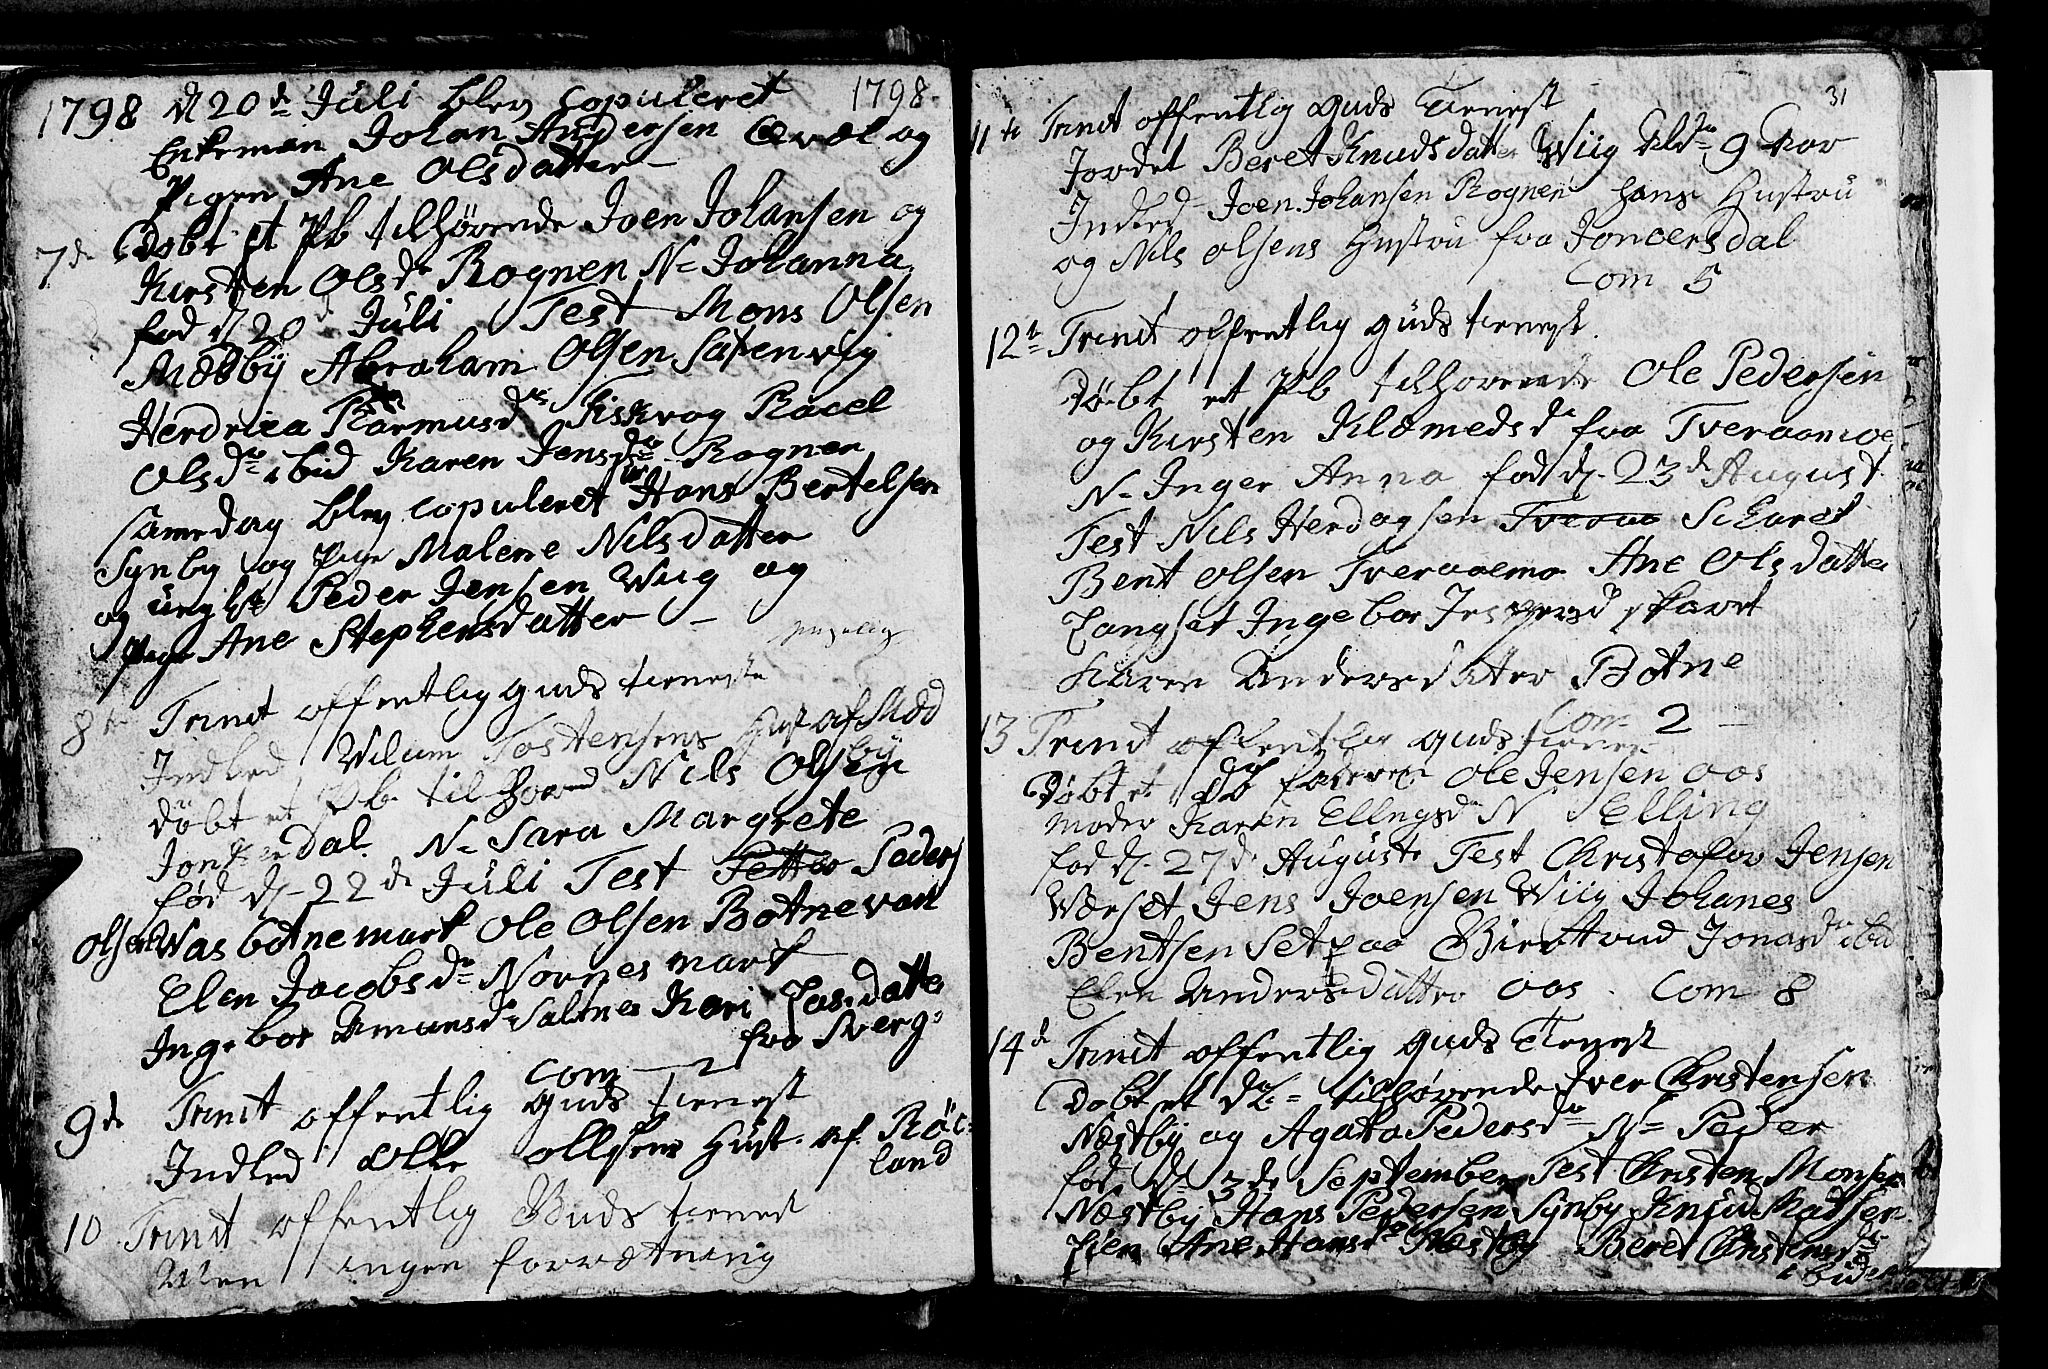 1798 d 20de Juli blev Copuleret 1798.
Enkeman Johan Andersen Qvæl og
Pigen Ane Olsdatter
7de Døbt et Pb tilhørende Joen Johansen og
Kirsten Olsdr Rognen N= Johanna
fød d 20d Juli Test Mons Olsen
Mædbÿ Abraham Olsen Saxenvig
Hendrica Rasmusdr Fiskvog Racel
Olsdr ibid Karen Jensdr Rognen
samedag blev copuleret Hans Bertelsen
Synby og Pige Malene Nilsdatter
og ungk Peder Jensen Wiig og
Pige Ane Stephensdatter -
8de Trinit offentlig guds tieneste
Indled Wilum Tostensens Hust af Mæd
bÿ
døbt et Pb. tilhørend Nils Olsen
Jonkerdal. N= Sara Margrete
fød d- 22de Juli Test Petter Peders
Olsen Wasbotnemark Ole Olsen Botnevan
Elen Jacobsdr Nornesmark
Ingebor Amunsdr Saltnes Kari Lasdatter
fra Sverg=
Com - 2
9de Trinit offentlig guds tienest
Indled Olle Ollsens Hust. af. Røc=
land
10 Trinit offentlig Guds tienest
Men ingen forrætning
31
11te Trinit offentlig guds Tienest
Jordet Beret Knudsdatter Wiig Eld 9 aar
Indled Joen Johansen Rognen hans Hustru
og Nils Olsens Hustru fra Joncersdal
Com 5
12te Trinit offentlig guds tienest.
døbt et Pb tilhørende Ole Pedersen
og Kirsten Klæmedsdr fra Tveraamoe
N- Inger Anna fød d. 23de August
Test Nils Herdagsen Tveraa Scharet
Bent Olsen Tveraaemo Ane Olsdatter
Langset Ingebor Jespersdr skaret
Karen Andersdatter Botne
Com- 2 -
13 Trinit offentlig guds tienest
Døbt et Db faderen Ole Jensen Aas
moder Karen Ellingsdr N Elling
fød d. 27de August Test Christofer Jensen
Wærset Jens Joensen Wiig Johanes
Bentsen Setsaa Birettrud Jonasdr ibid
Elen Andersdatter Aas. Com 8
14d Trinit offentlig guds Tienest
Døbt et D.= tilhørende Iver Christensen
Næstbÿ og Agata Pedersdr N= Peder
fød d= 3de September Test Christen Monsen
Næstby Hans Pedersen Synby Knud Matsen
Lien Ane Hansdr Næstby Beret Christensdr
ibid